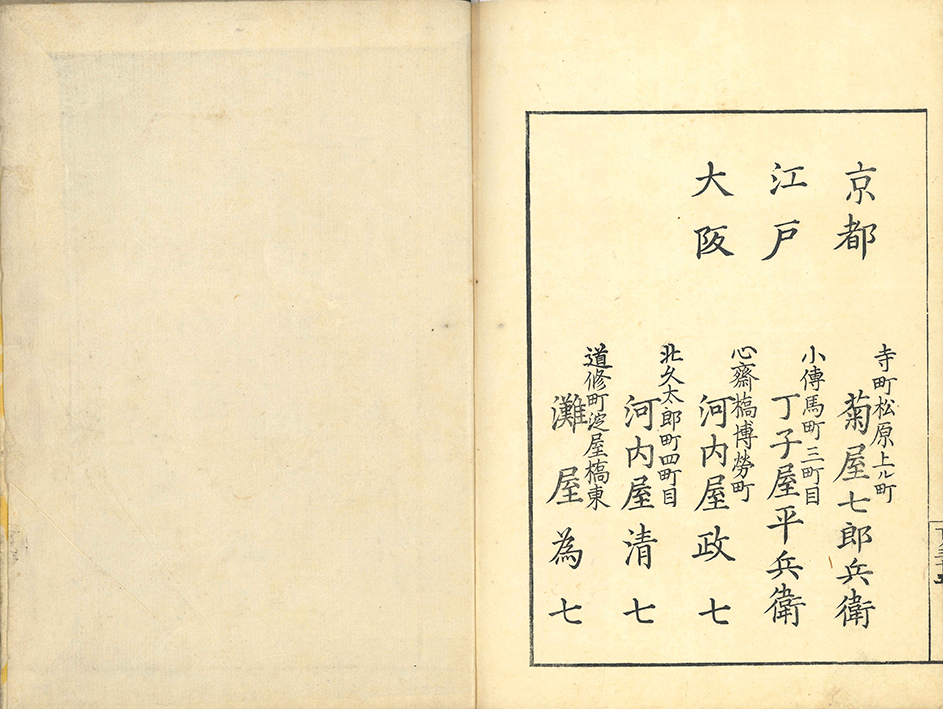 京都
寺町松原上ル町
菊屋七郎兵衛
江戸
小傳馬町三町目
丁子屋平兵衛
大阪
心齋槗博勞町
河内屋政七
北久太郎町四町目
河内屋清七
道修町淀屋槗東
灘屋為七